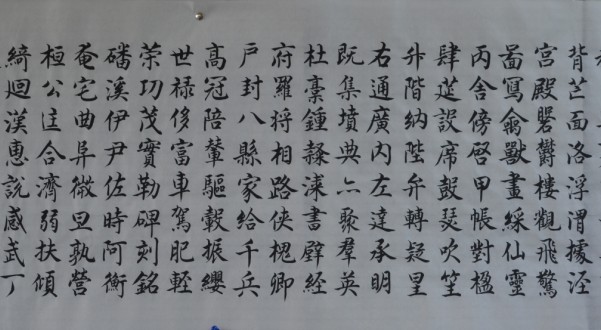 背芒面洛浮渭據涇
宮殿磐欝樓觀飛驚
啚寫禽獸畫綵仙靈
丙舍傍啓甲帳對楹
肆筵設席鼓瑟吹笙
升階納陛弁轉疑星
右通廣內左達承明
既集墳典亦聚群英
杜稾鍾隸漆書壁経
府羅将相路俠槐卿
戶封八縣家給千兵
高冠陪輦驅轂振纓
世禄侈富車駕肥軽
策功茂實勒碑刻銘
磻溪伊尹佐時阿衡
奄宅曲阜微旦孰營
桓公匡合濟弱扶傾
綺迴漢惠說感武丁